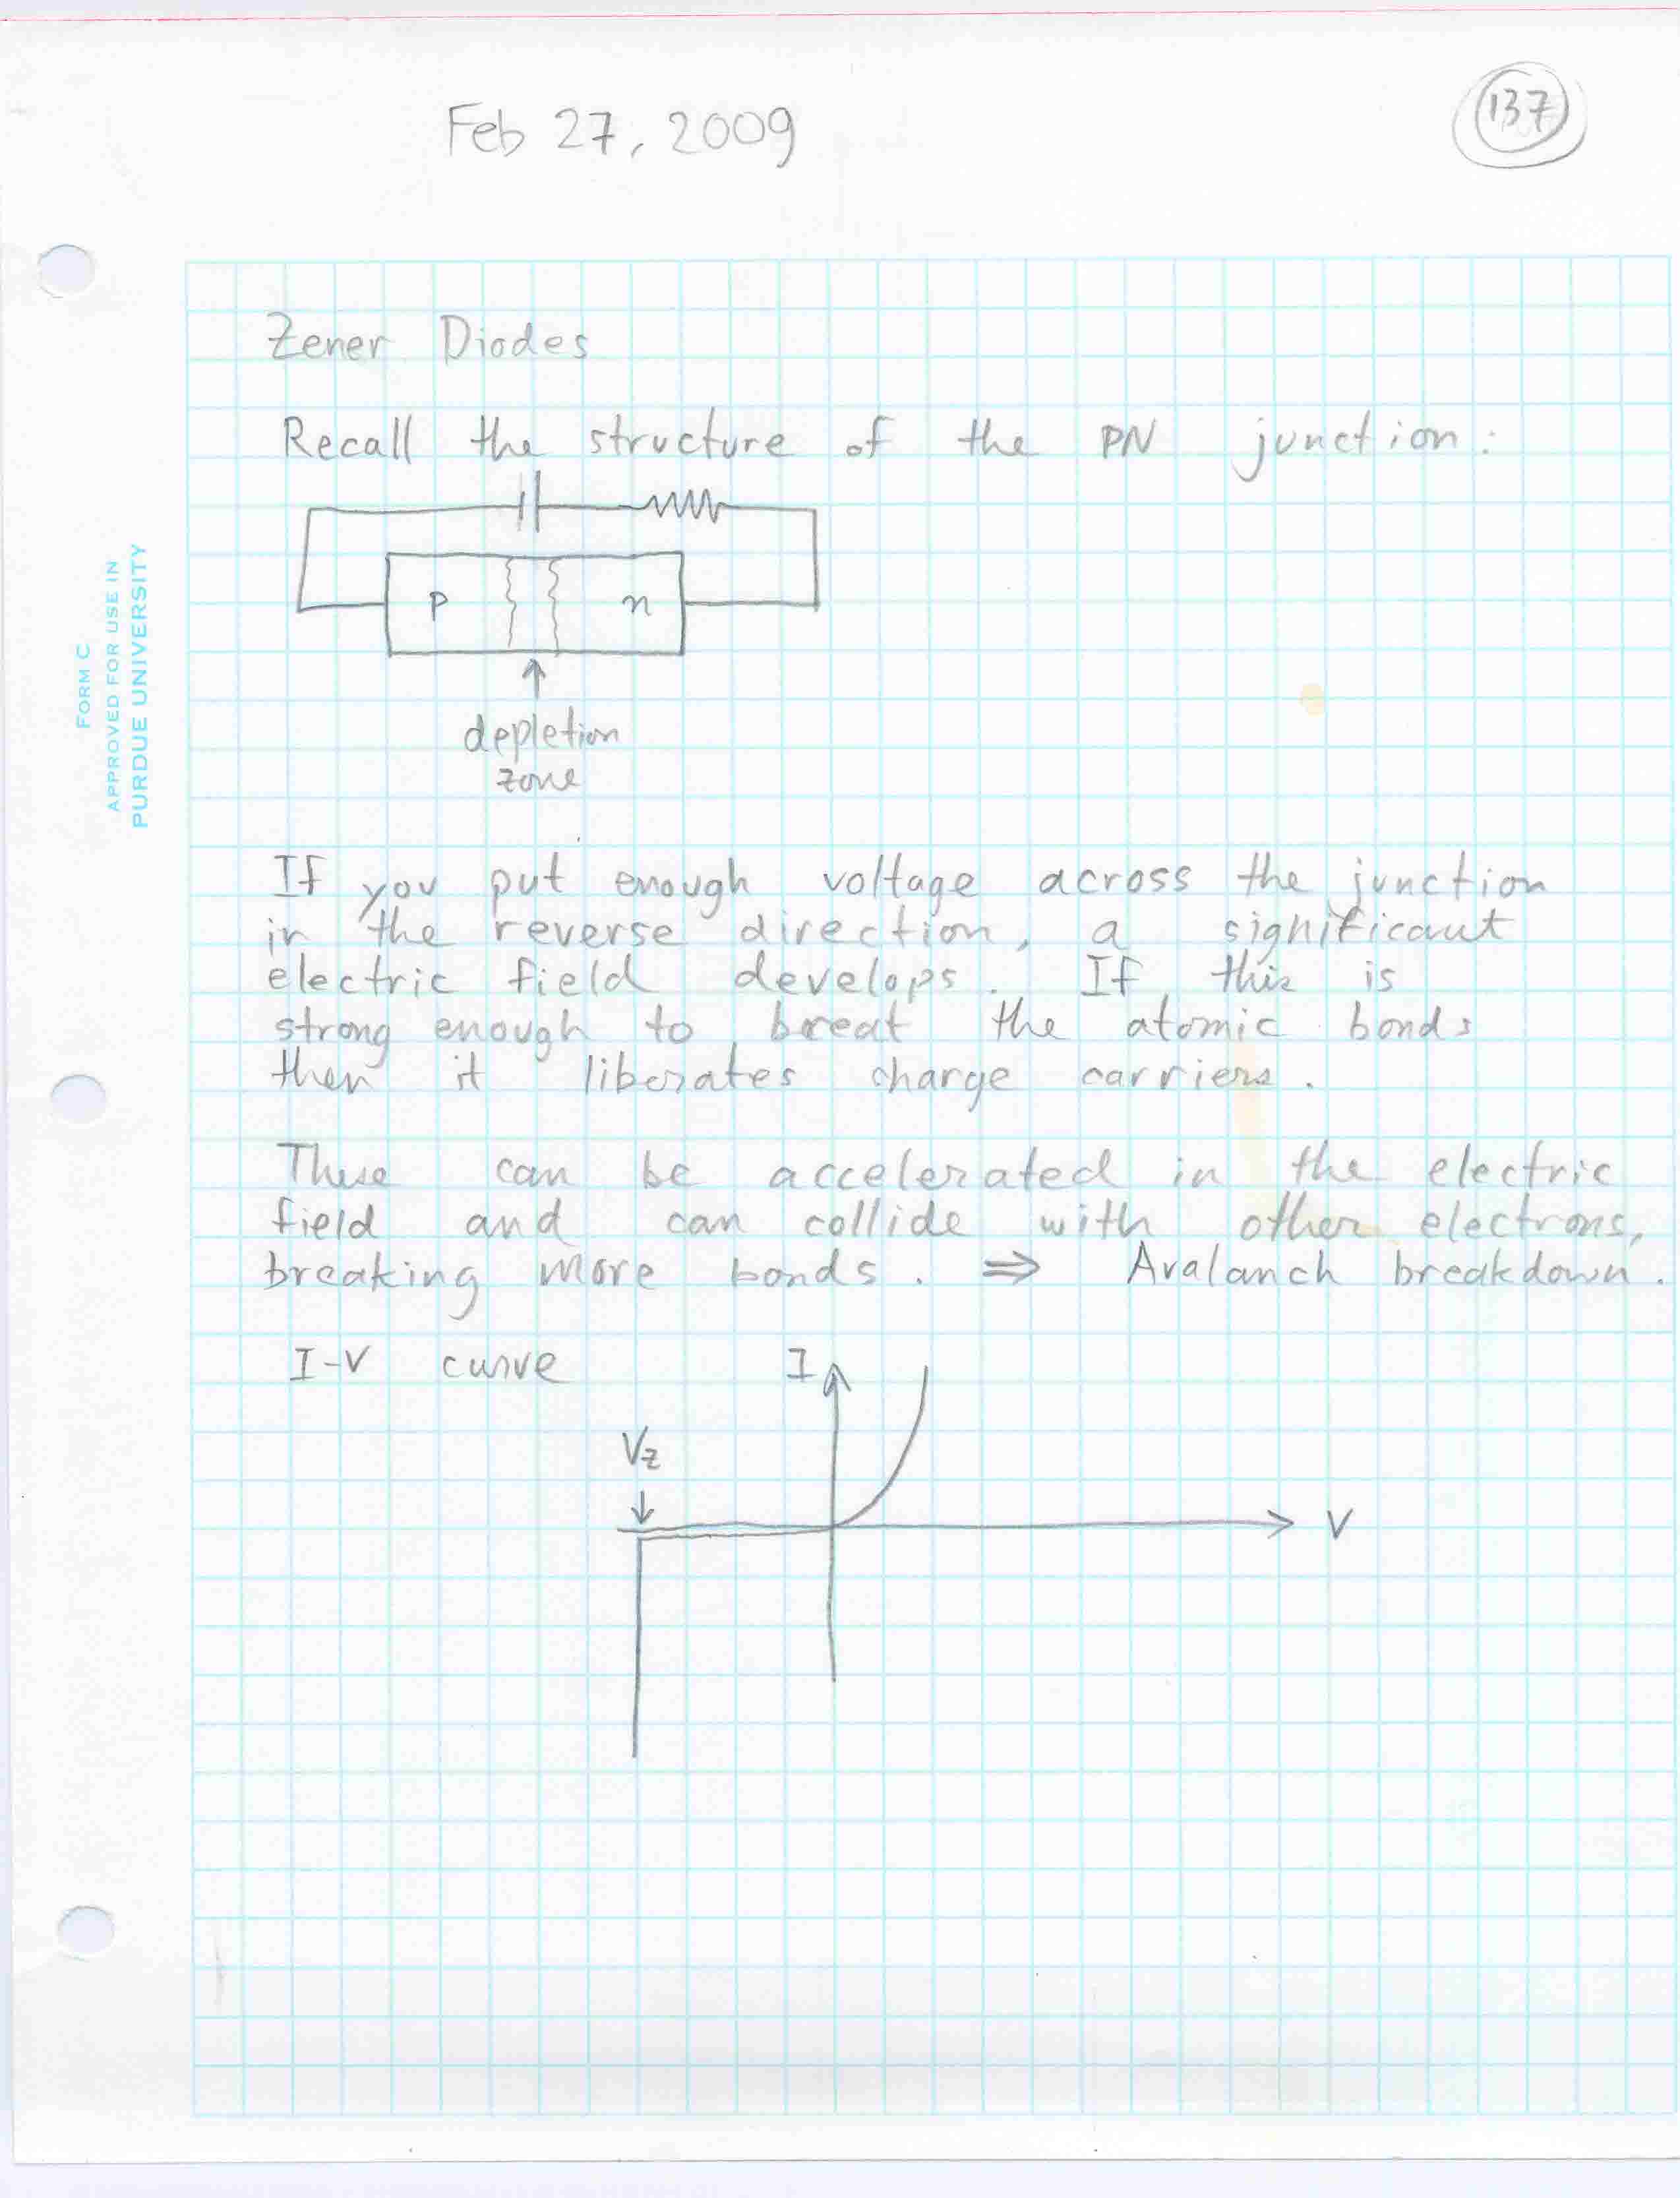 Feb 27, 2009
137
FORM C
APPROVED FOR USE IN
PURDUE UNIVERSITY
Zener Diodes
Recall the structure of the PN junction:
p n
depletion
zone
If you put enough voltage across the junction
in the reverse direction, a significant
electric field develops. If this is
strong enough to breat the atomic bonds
then it liberates charge carriers.
These can be accelerated in the electric
field and can collide with other electrons,
breaking more bonds. ⇒ Avalanch breakdown.
I-V curve
I
Vz
V